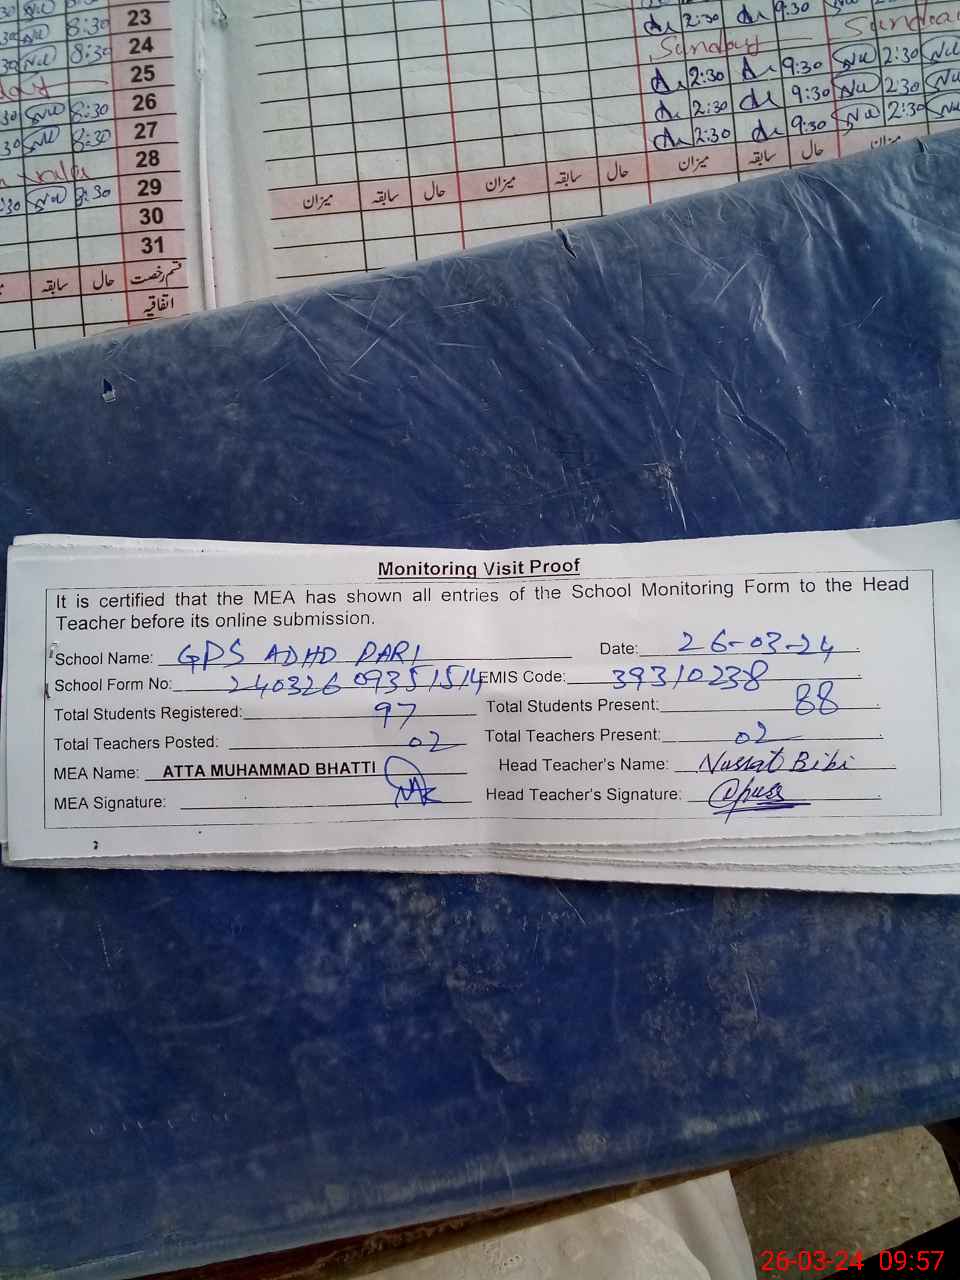 23
24
25
26
27
28
29
30
31
قسم رخصت حال سابقہ
اتفاقیہ
8:30
8:30
8:30
8:30
8:30
2:30 9:30
Sunday
2:30 9:30 2:30
2:30 9:30 2:30
2:30 9:30 2:30
میزان سابقہ حال میزان سابقہ حال میزان سابقہ حال میزان
Monitoring Visit Proof
It is certified that the MEA has shown all entries of the School Monitoring Form to the Head
Teacher before its online submission.
School Name: GPS ADHO PARI Date: 26-03-24
School Form No: 24032609351514 EMIS Code: 39310238
Total Students Registered: 97 Total Students Present: 88
Total Teachers Posted: 02 Total Teachers Present: 02
MEA Name: ATTA MUHAMMAD BHATTI Head Teacher's Name: Nusrat Bibi
MEA Signature: Head Teacher's Signature:
26-03-24 09:57